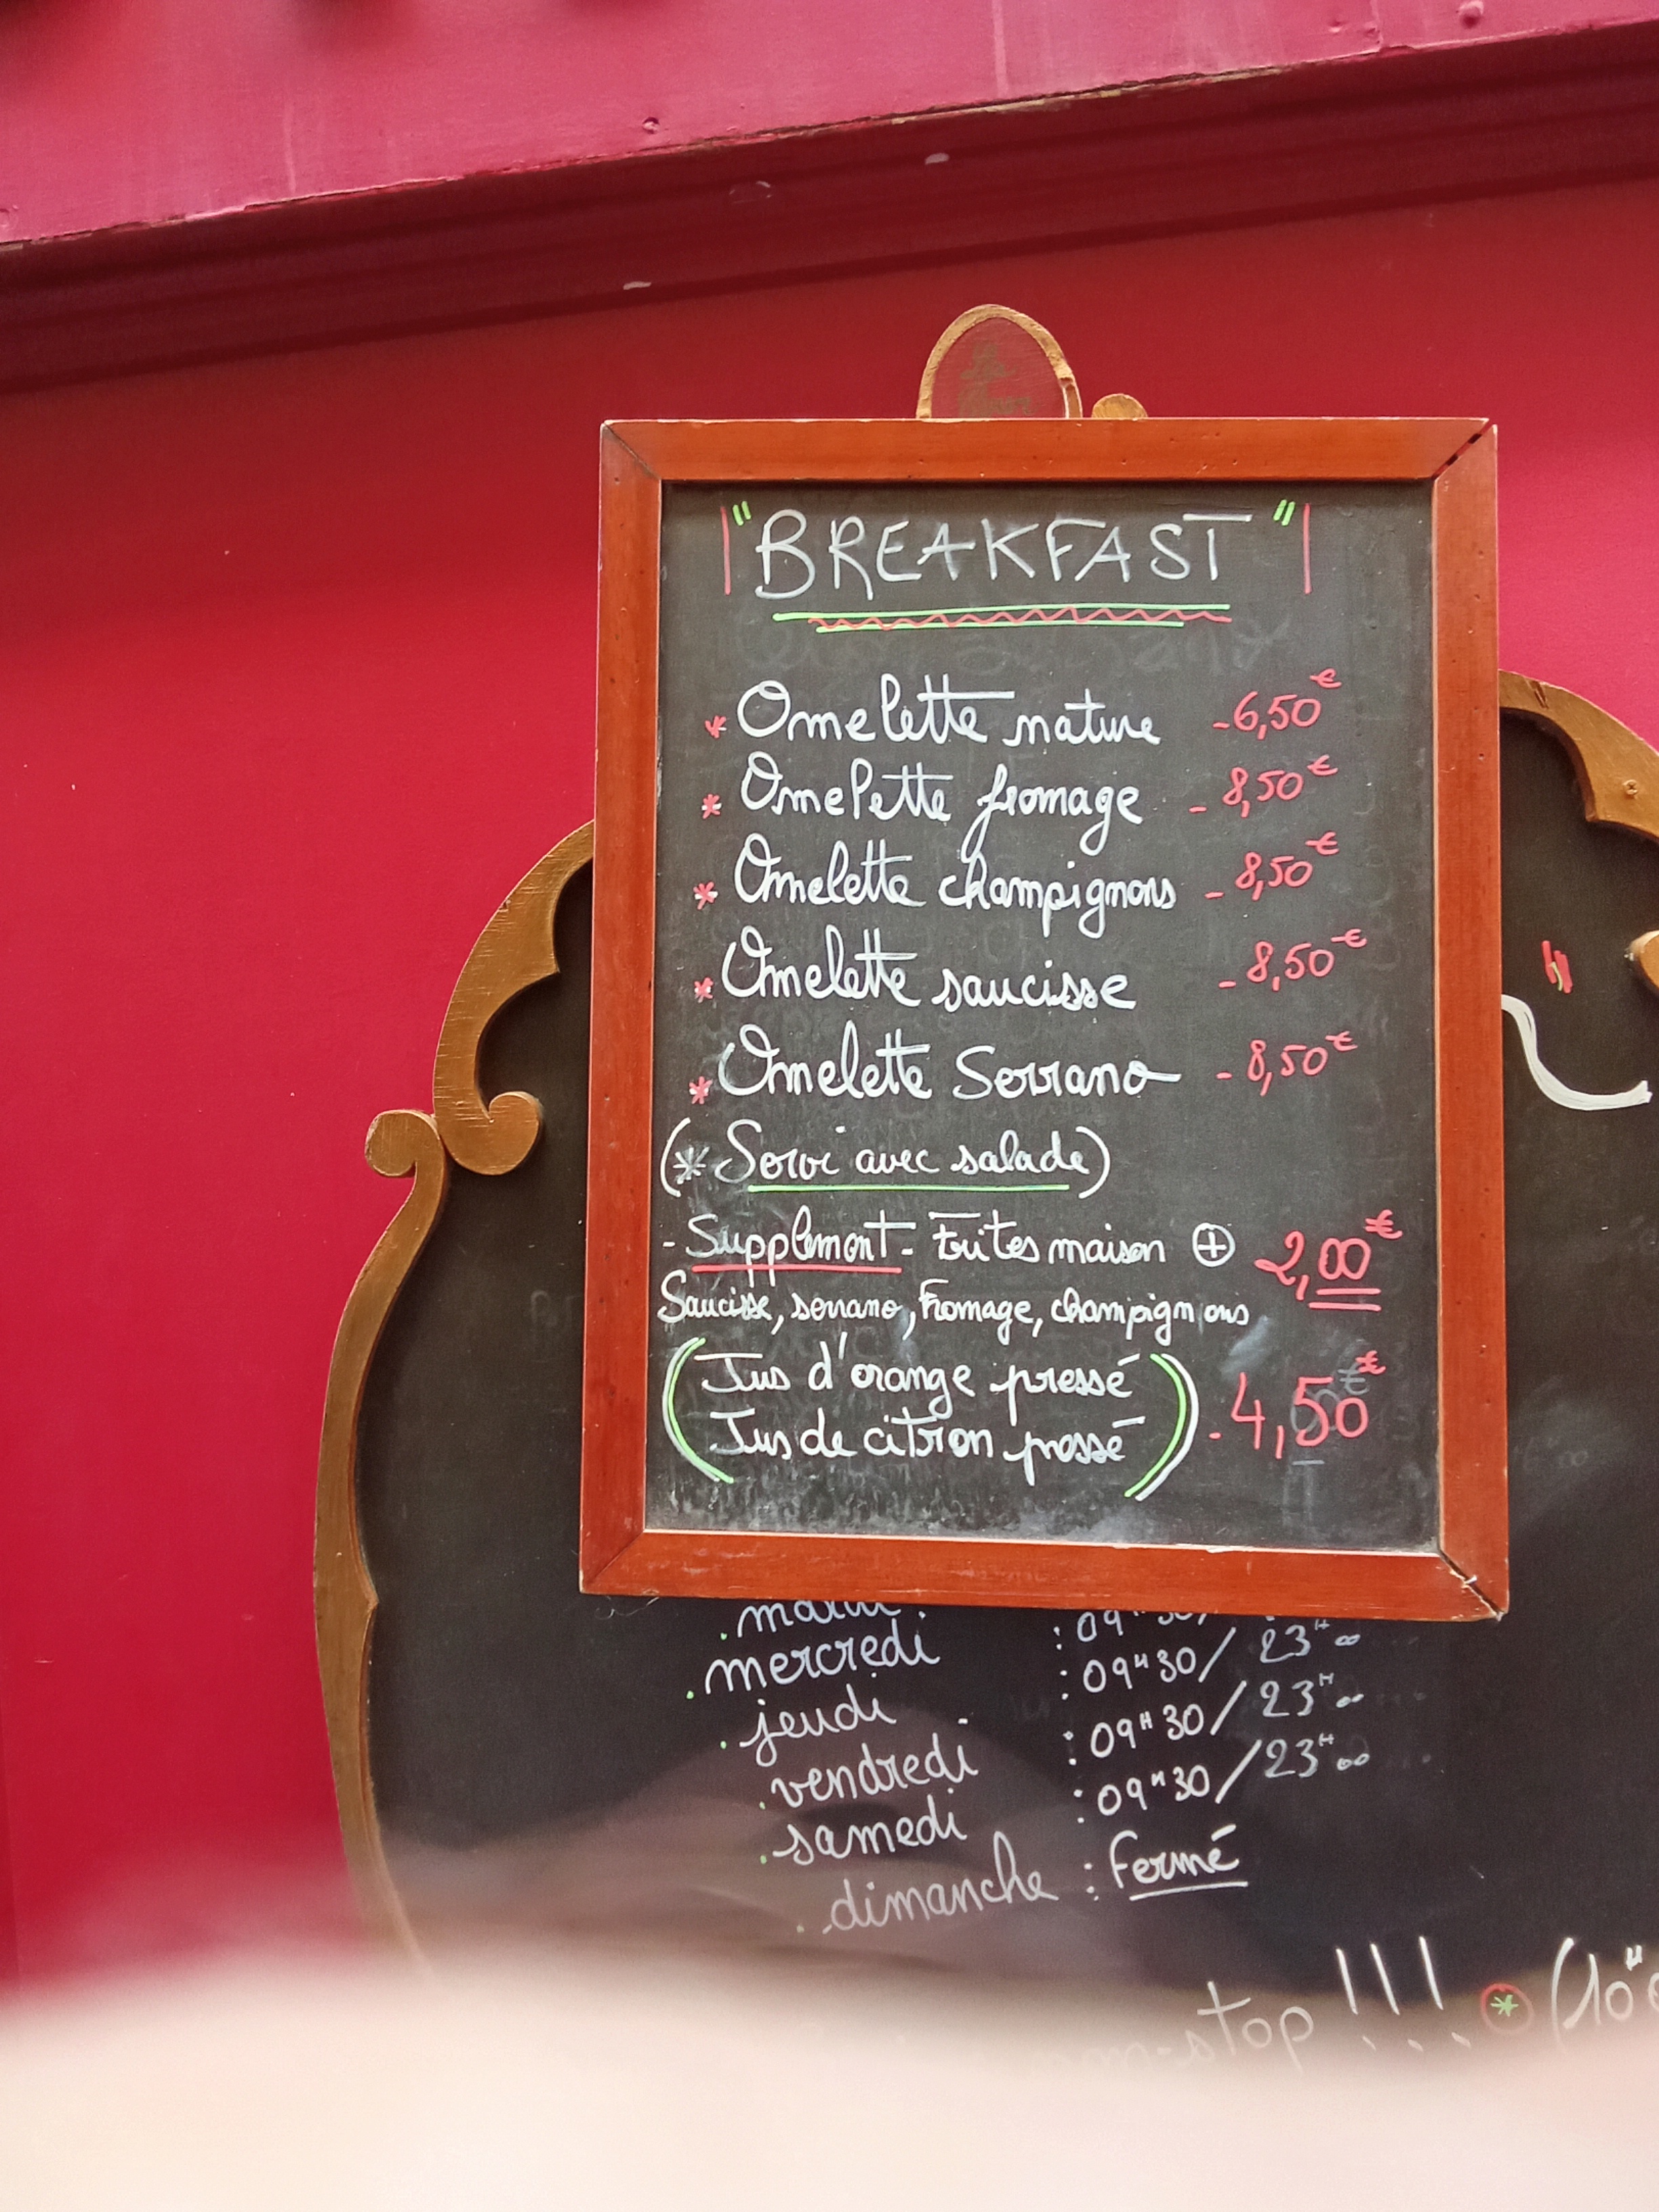 "BREAKFAST"
* Omelette nature - 6,50€
* Omelette fromage - 8,50€
* Omelette champignons - 8,50€
* Omelette saucisse - 8,50€
* Omelette Serrano - 8,50€
(* Servi avec salade)
- Supplement - Frites maison ⊕ 2,00€
Saucisse, serrano, Fromage, champignons
(Jus d'orange pressé
Jus de citron pressé) - 4,50€
. mercredi : 09H30 / 23H00
. jeudi : 09H30 / 23H00
. vendredi : 09H30 / 23H00
. samedi
. dimanche : Fermé
non-stop !!! * (10H